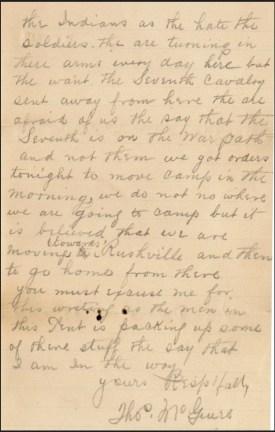 thr Indians as the hate the
soldiers. the are turning in
there arms every day here but
the want the Seventh Cavalry
sent away from here the are
afraid of us the say that the
Seventh is on the War path
and not them we got orders
tonight to move camp in the
morning, we do not no where
we are going to camp but it
is believed that we are
towards
moving to Rushville and then
to go home from there
you must excuse me for
this writing as the men in
this Tent is packing up some
of there stuff the say that
I am In the way
yours Respfally
Thos. McGuire